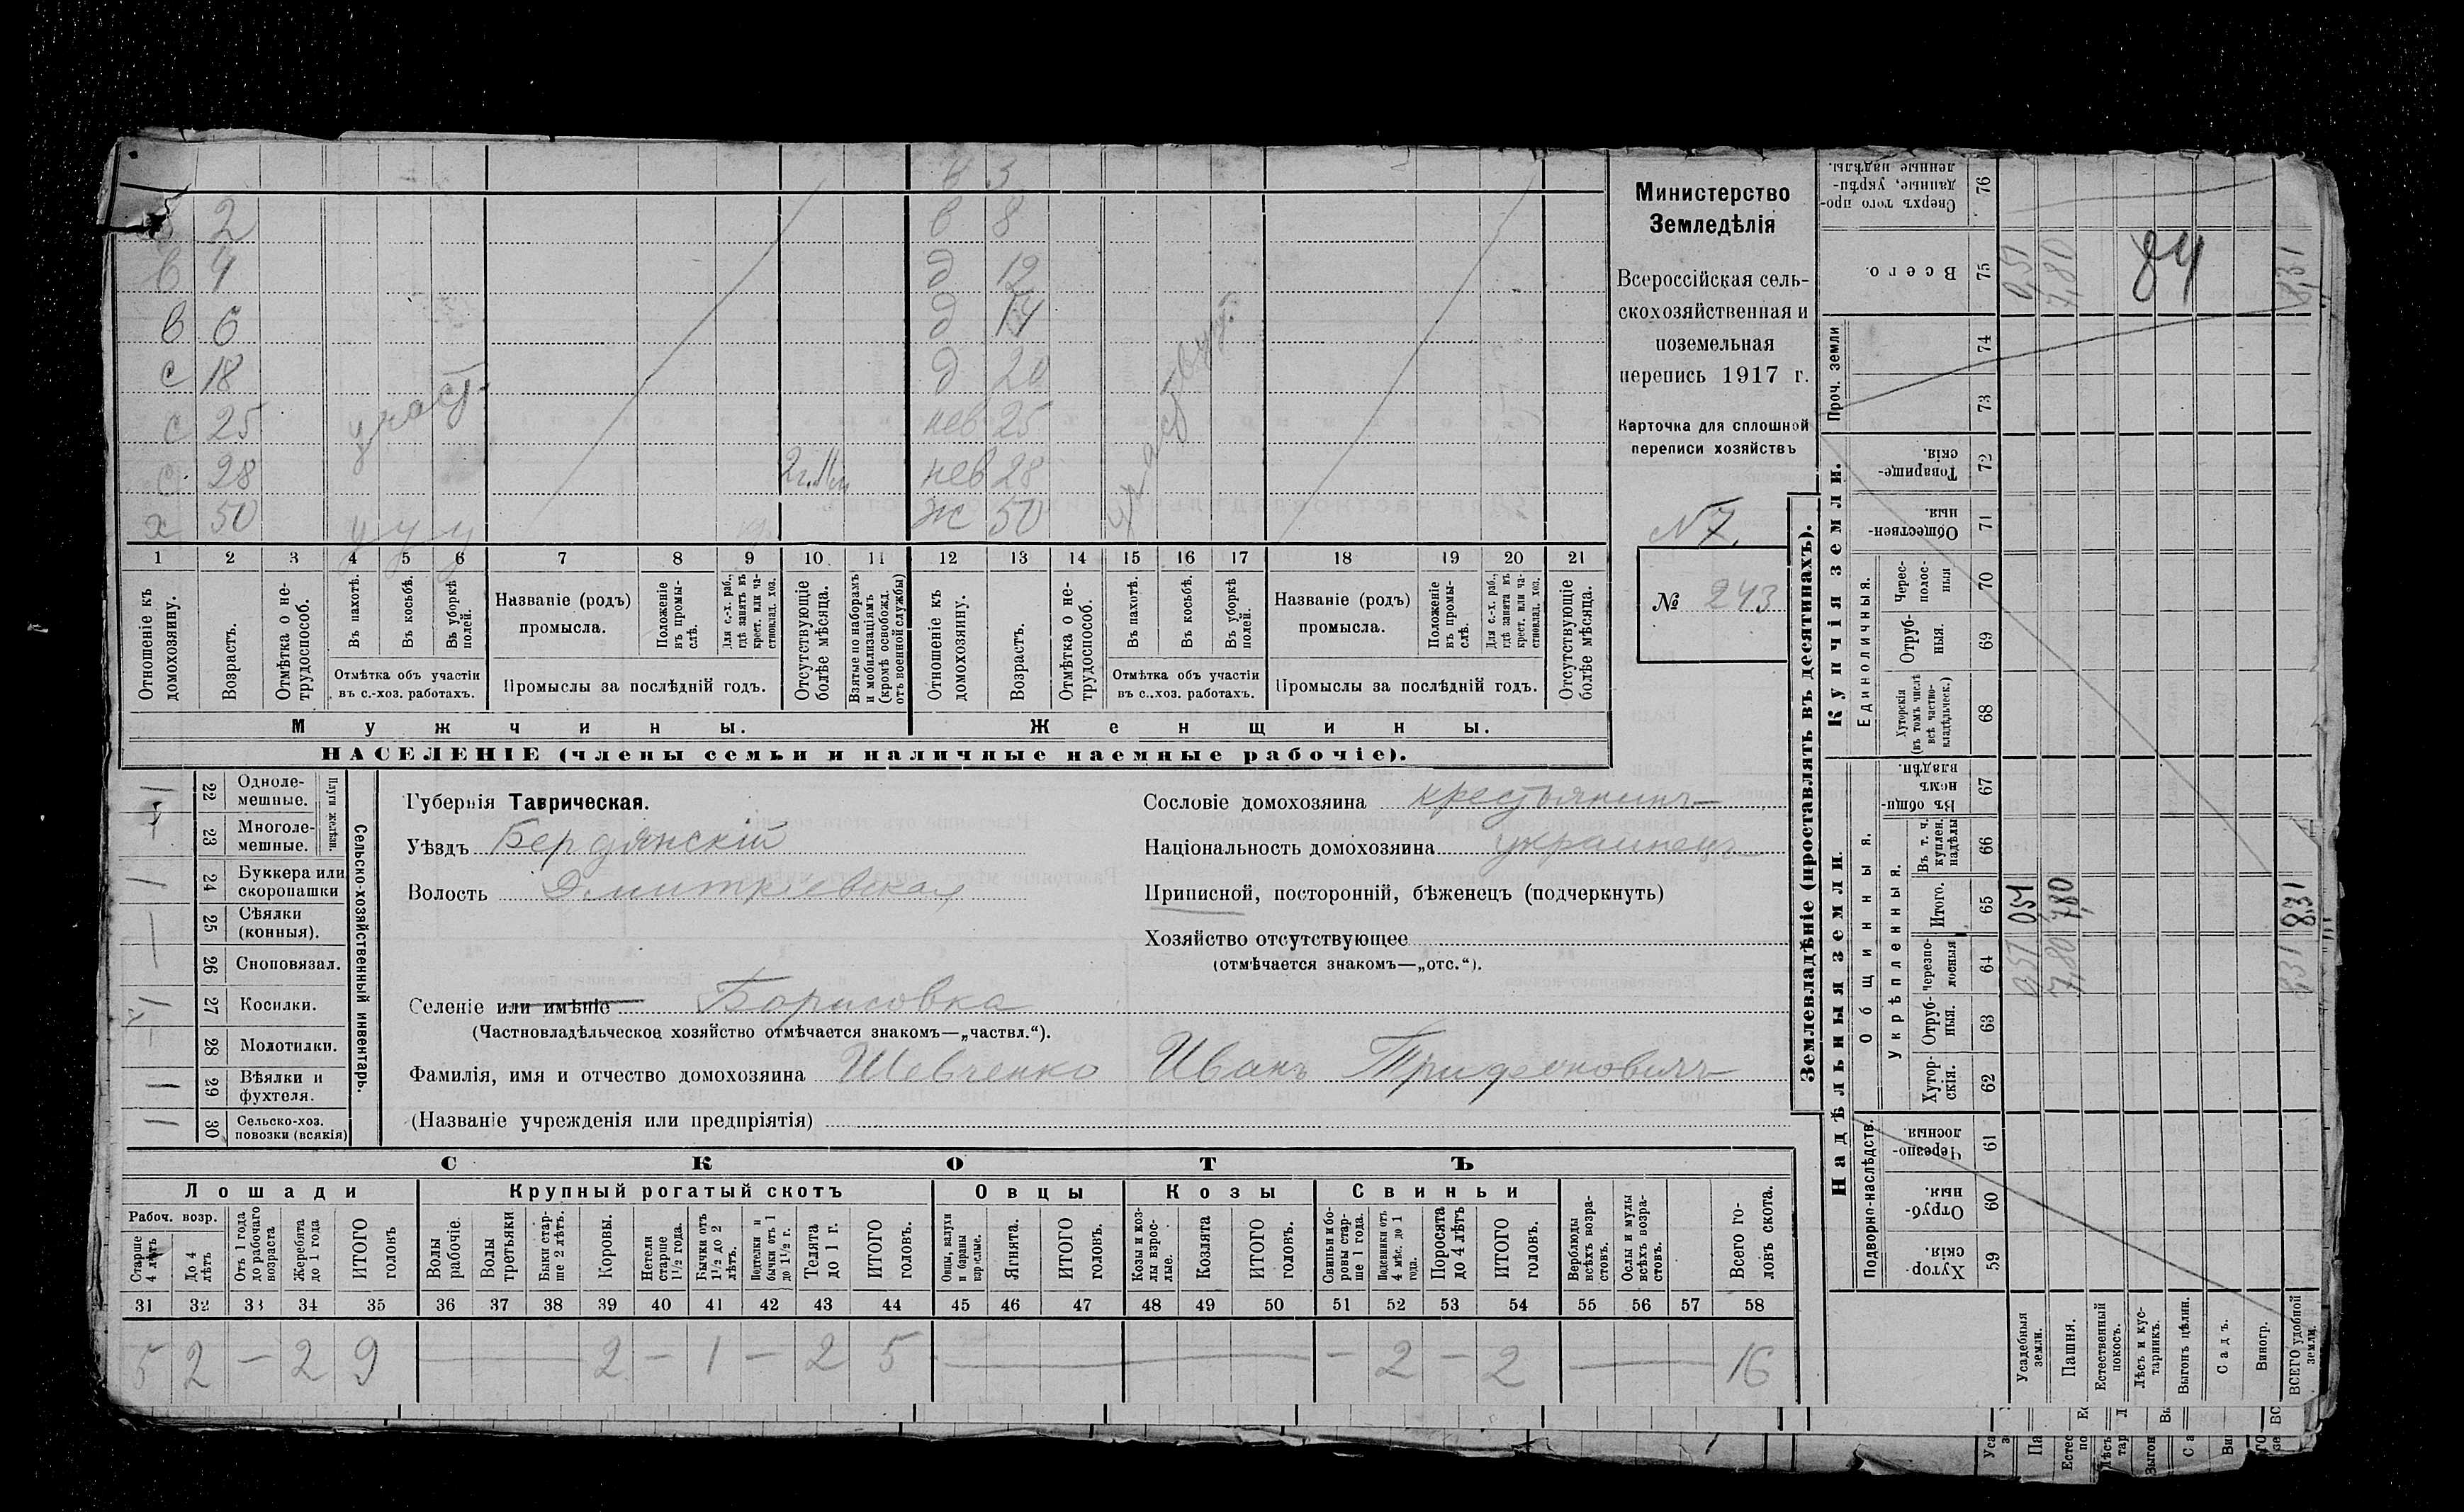 в 3
2 в 8
в 4 д 12
в 6 д 14
с 18 д 20
с 25 участ. нев 25
с 28 нев 28
х 50 у у у ж 50
1 2 3 4 5 6 7 8 9 10 11 12 13 14 15 16 17 18 19 20 21
Отношеніе къ домохозяину.
Возрастъ.
Отмѣтка о не-трудоспособ.
Въ пахотѣ.
Въ косьбѣ.
Въ уборкѣ полей.
Отмѣтка объ участіи
въ с.-хоз. работахъ.
Названіе (родъ)
промысла.
Положеніе въ промы-слѣ.
Для с.-х. раб., гдѣ занятъ въ крест. или ча-стновлад. хоз.
Промыслы за послѣдній годъ.
Отсутствующіе болѣе мѣсяца.
Взятые по наборамъ и мобилизаціямъ (кромѣ освобожд. отъ военной службы)
Отношеніе къ домохозяину.
Возрастъ.
Отмѣтка о не-трудоспособ.
Въ пахотѣ.
Въ косьбѣ.
Въ уборкѣ полей.
Отмѣтка объ участіи
въ с..хоз. работахъ.
Названіе (родъ)
промысла.
Положеніе въ промы-слѣ.
Для с.-х. раб., гдѣ занята въ крест. или ча-стновлад. хоз.
Промыслы за послѣдній годъ.
Отсутствующіе болѣе мѣсяца.
Мужчины.
Женщины.
НАСЕЛЕНІЕ (члены семьи и наличные наемные рабочіе).
Министерство
Земледѣлія
Всероссійская сель-
скохозяйственная и
поземельная
перепись 1917 г.
Карточка для сплошной
переписи хозяйствъ
N 7.
№ 243
Сельско-хозяйственный инвентарь.
Плуги желѣзн.
22 Одноле-мешные.
23 Многоле-мешные.
24 Буккера или скоропашки
25 Сѣялки (конныя).
26 Сноповязал.
27 Косилки.
28 Молотилки.
29 Вѣялки и фухтеля.
30 Сельско-хоз. повозки (всякія)
Губернія Таврическая.
Уѣздъ Бердянскій
Волость Дмитріевская
Сословіе домохозяина крестьянинъ
Національность домохозяина украинецъ
Приписной, посторонній, бѣженецъ (подчеркнуть)
Хозяйство отсутствующее
(отмѣчается знакомъ—„отс.“).
Селеніе или имѣніе Борисовка
(Частновладѣльческое хозяйство отмѣчается знакомъ—„частвл.“).
Фамилія, имя и отчество домохозяина Шевченко Иванъ Трифоновичъ
(Названіе учрежденія или предпріятія)
СКОТЪ
Лошади
Крупный рогатый скотъ
Овцы
Козы
Свиньи
Рабоч. возр.
Старше 4 лѣтъ
До 4 лѣтъ
Отъ 1 года до рабочаго возраста
Жеребята до 1 года
ИТОГО головъ
Волы рабочіе.
Волы третьяки
Быки стар-ше 2 лѣтъ.
Коровы.
Нетели старше 1½ года.
Бычки отъ 1½ до 2 лѣтъ.
Подтелки и бычки отъ 1 до 1½ г.
Телята до 1 г.
ИТОГО головъ.
Овцы, валухи и бараны взрослые.
Ягнята.
ИТОГО головъ.
Козы и коз-лы взрос-лые.
Козлята
ИТОГО головъ.
Свиньи и бо-ровы стар-ше 1 года.
Подсвинки отъ 4 мѣс. до 1 года.
Поросята до 4 лѣтъ
ИТОГО головъ.
Верблюды всѣхъ возра-стовъ.
Ослы и мулы всѣхъ возра-стовъ.
Всего го-ловъ скота.
31 32 33 34 35 36 37 38 39 40 41 42 43 44 45 46 47 48 49 50 51 52 53 54 55 56 57 58
5 2 — 2 9 — 2 — 1 — 2 5 — — 2 — 2 — 16
Землевладѣніе (проставлять въ десятинахъ).
Надѣльныя земли.
Купчія земли.
Проч. земли
Подворно-наслѣдств.
Общинныя.
Укрѣпленныя.
Единоличныя.
Сверхъ того про-данные, укрѣп-ленные надѣлы. 76
Всего. 75 0,51 7,80 84 8,31
74
73
Товарище-скія. 72
Обществен-ныя. 71
Черес-полос-ныя 70
Отруб-ныя. 69
Хуторскія (въ томъ числѣ всѣ частно-владѣльческ.) 68
Въ общи-номъ владѣн. 67
Въ т. ч. куплен. надѣлы 66
Итого. 65 051 7,80 8,31
Черезпо-лосныя 64 0,51 7,80 8,31
Отруб-ныя. 63
Хутор-скія. 62
Черезпо-лосныя. 61
Отруб-ныя. 60
Хутор-скія. 59
Усадебныя земли.
Пашня.
Естественный покосъ.
Лѣсъ и кус-тарникъ.
Выгонъ цѣлин.
Садъ.
Виногр.
ВСЕГО удобной земли.